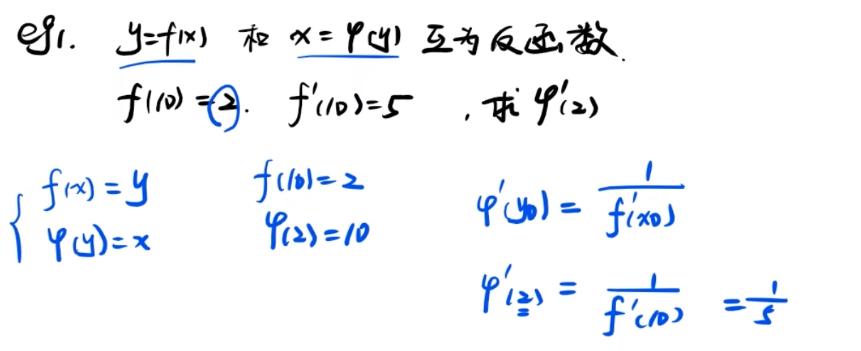 eg1. y=f(x) 和 x=φ(y) 互为反函数.
f(10)=2. f'(10)=5 , 求φ'(2)
{ f(x)=y f(10)=2 φ'(y0)= 1/f'(x0)
φ(y)=x φ(2)=10
φ'(2)= 1/f'(10) =1/5